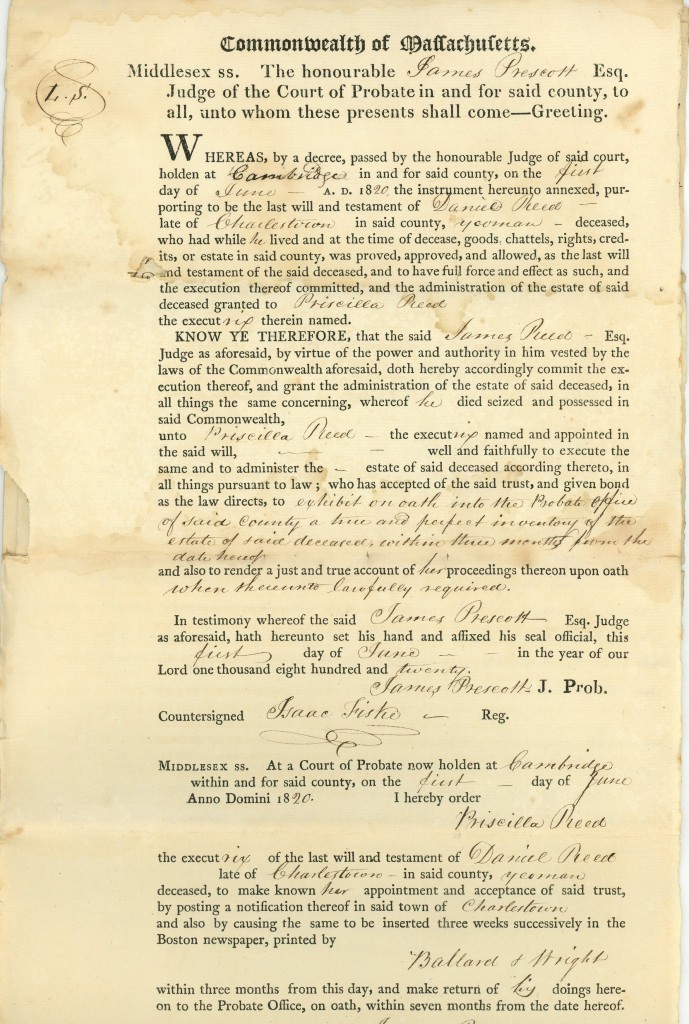 Commonwealth of Massachusetts.
Middlesex ss. The honourable James Prescott Esq.
L. S.
Judge of the Court of Probate in and for said county, to
all, unto whom these presents shall come—Greeting.
WHEREAS, by a decree, passed by the honourable Judge of said court,
holden at Cambridge in and for said county, on the first
day of June — A. D. 1820, the instrument hereunto annexed, pur-
porting to be the last will and testament of Daniel Reed —
late of Charlestown in said county, yeoman — deceased,
who had while he lived and at the time of decease, goods, chattels, rights, cred-
its, or estate in said county, was proved, approved, and allowed, as the last will
and testament of the said deceased, and to have full force and effect as such, and
the execution thereof committed, and the administration of the estate of said
deceased granted to Priscilla Reed
the executrix therein named.
KNOW YE THEREFORE, that the said James Reed — Esq.
Judge as aforesaid, by virtue of the power and authority in him vested by the
laws of the Commonwealth aforesaid, doth hereby accordingly commit the ex-
ecution thereof, and grant the administration of the estate of said deceased, in
all things the same concerning, whereof he died seized and possessed in
said Commonwealth,
unto Priscilla Reed — the executrix named and appointed in
the said will, — — well and faithfully to execute the
same and to administer the — estate of said deceased according thereto, in
all things pursuant to law; who has accepted of the said trust, and given bond
as the law directs, to exhibit on oath into the Probate office
of said County a true and perfect inventory of the
estate of said deceased, within three months from the
date hereof
and also to render a just and true account of her proceedings thereon upon oath
when thereunto lawfully required.
In testimony whereof the said James Prescott Esq. Judge
as aforesaid, hath hereunto set his hand and affixed his seal official, this
first day of June — - in the year of our
Lord one thousand eight hundred and twenty.
James Prescott J. Prob.
Countersigned Isaac Fiske — Reg.
MIDDLESEX ss. At a Court of Probate now holden at Cambridge
within and for said county, on the first — day of June
Anno Domini 1820. I hereby order
Priscilla Reed
the executrix of the last will and testament of Daniel Reed
late of Charlestown — in said county, yeoman
deceased, to make known her appointment and acceptance of said trust,
by posting a notification thereof in said town of Charlestown
and also by causing the same to be inserted three weeks successively in the
Boston newspaper, printed by
Ballard & Wright
within three months from this day, and make return of his doings here-
on to the Probate Office, on oath, within seven months from the date hereof.